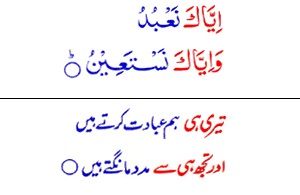 اِيَّاكَ نَعْبُدُ
وَاِيَّاكَ نَسْتَعِيْنُ ؕ○
تیری ہی ہم عبادت کرتے ہیں
اور تجھ ہی سے مدد مانگتے ہیں ○